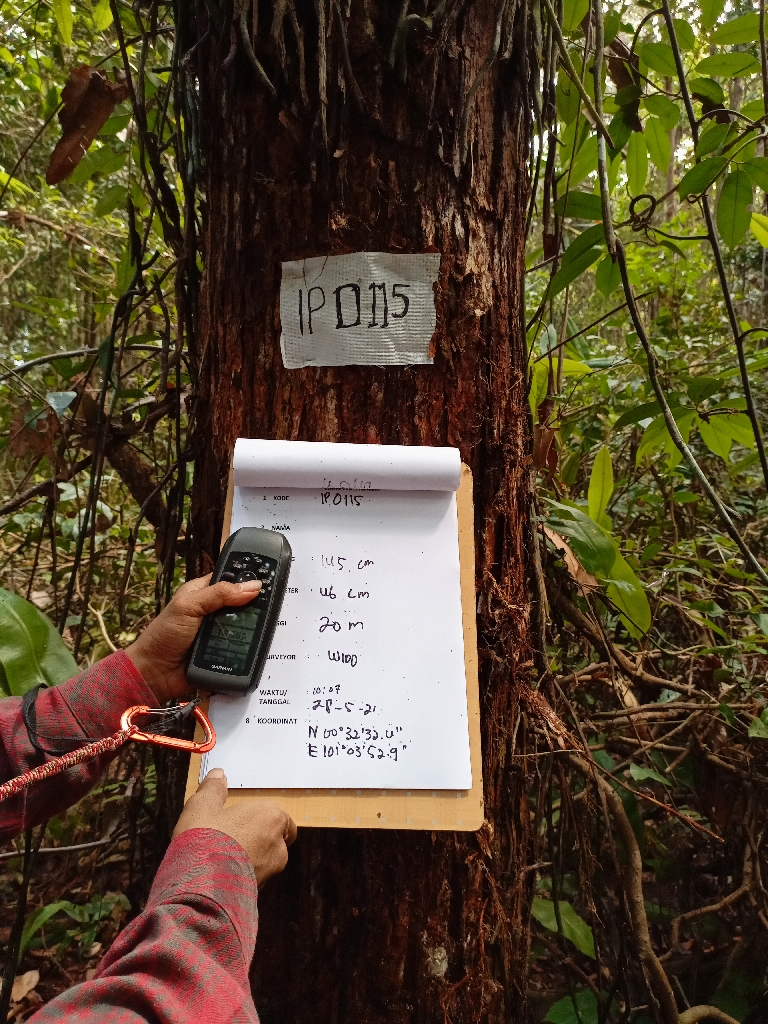 IP0115
1 KODE : IP.0115
NAMA
: 145 cm
ETER : 46 cm
GGI : 20 m
URVEYOR : WIDO
WAKTU/ : 10:07
TANGGAL 28-5-21
8 KOORDINAT : N 00°32'32.4"
E 101°03'52.9"
GARMIN